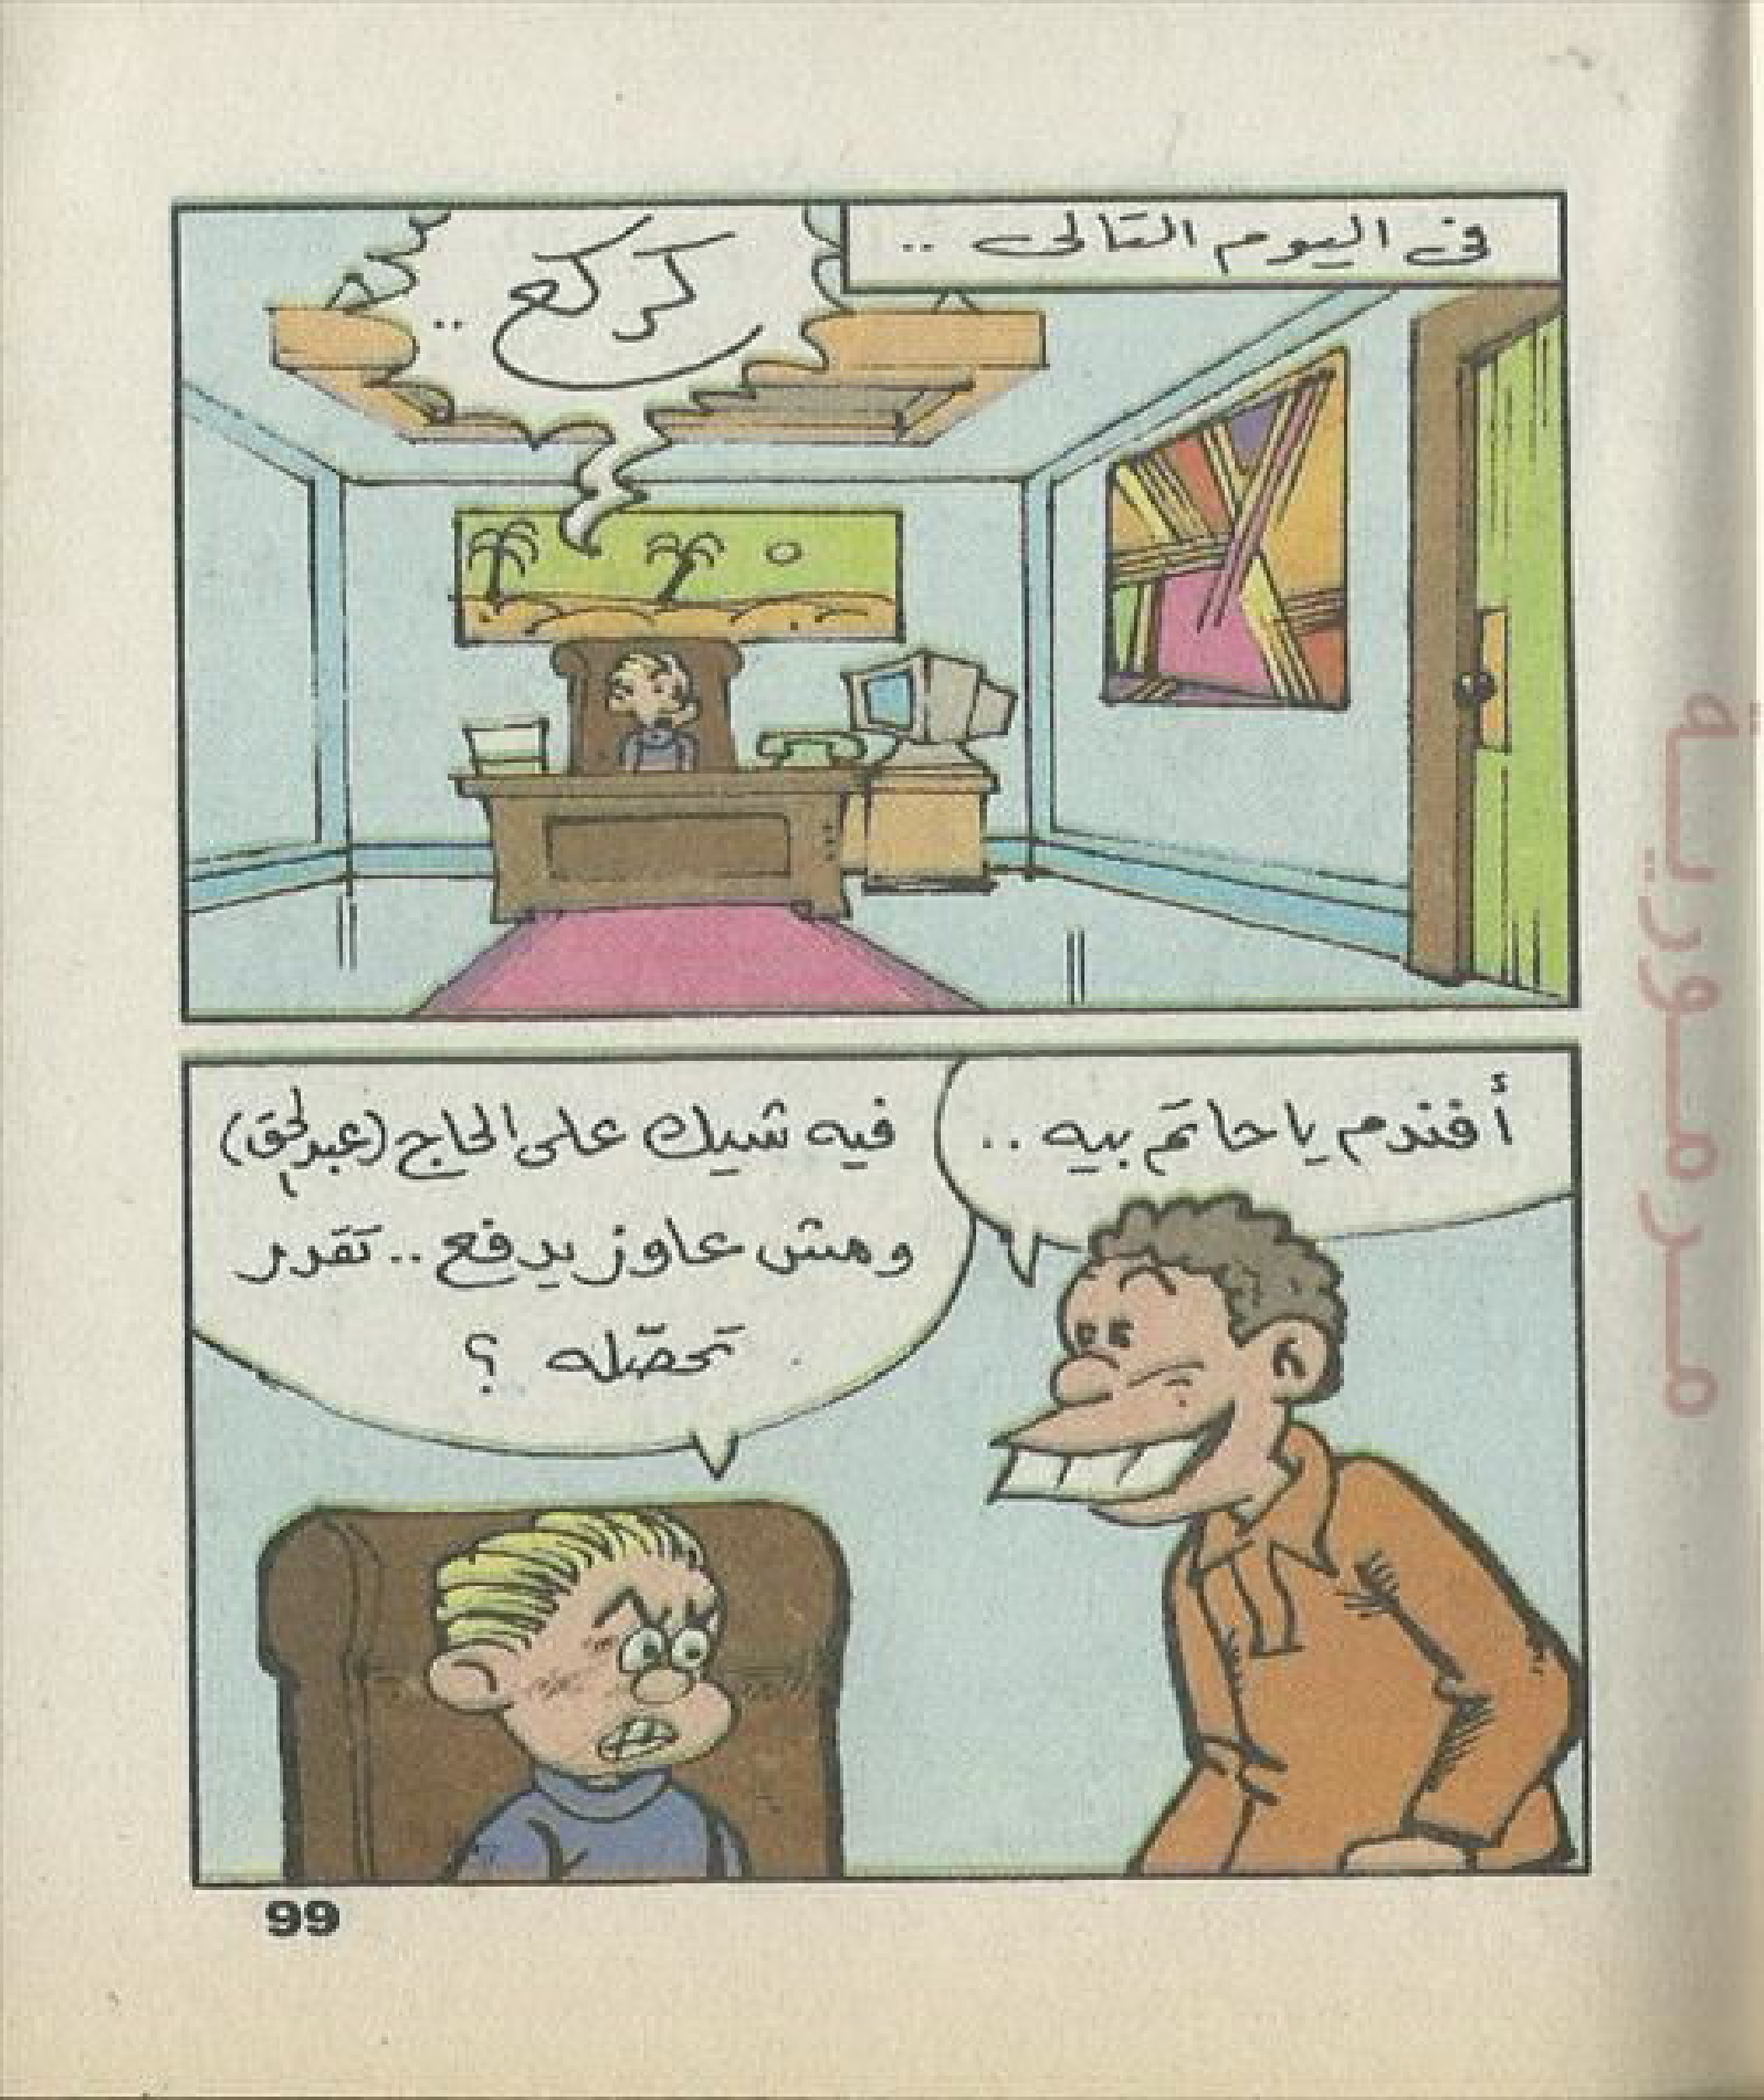 فى اليوم التالى ..
كركع ..
أفندم يا حاتم بيه ..
فيه شيك على الحاج (عبد الحق)
ومش عاوز يدفع .. تقدر
تحصّله ؟
99